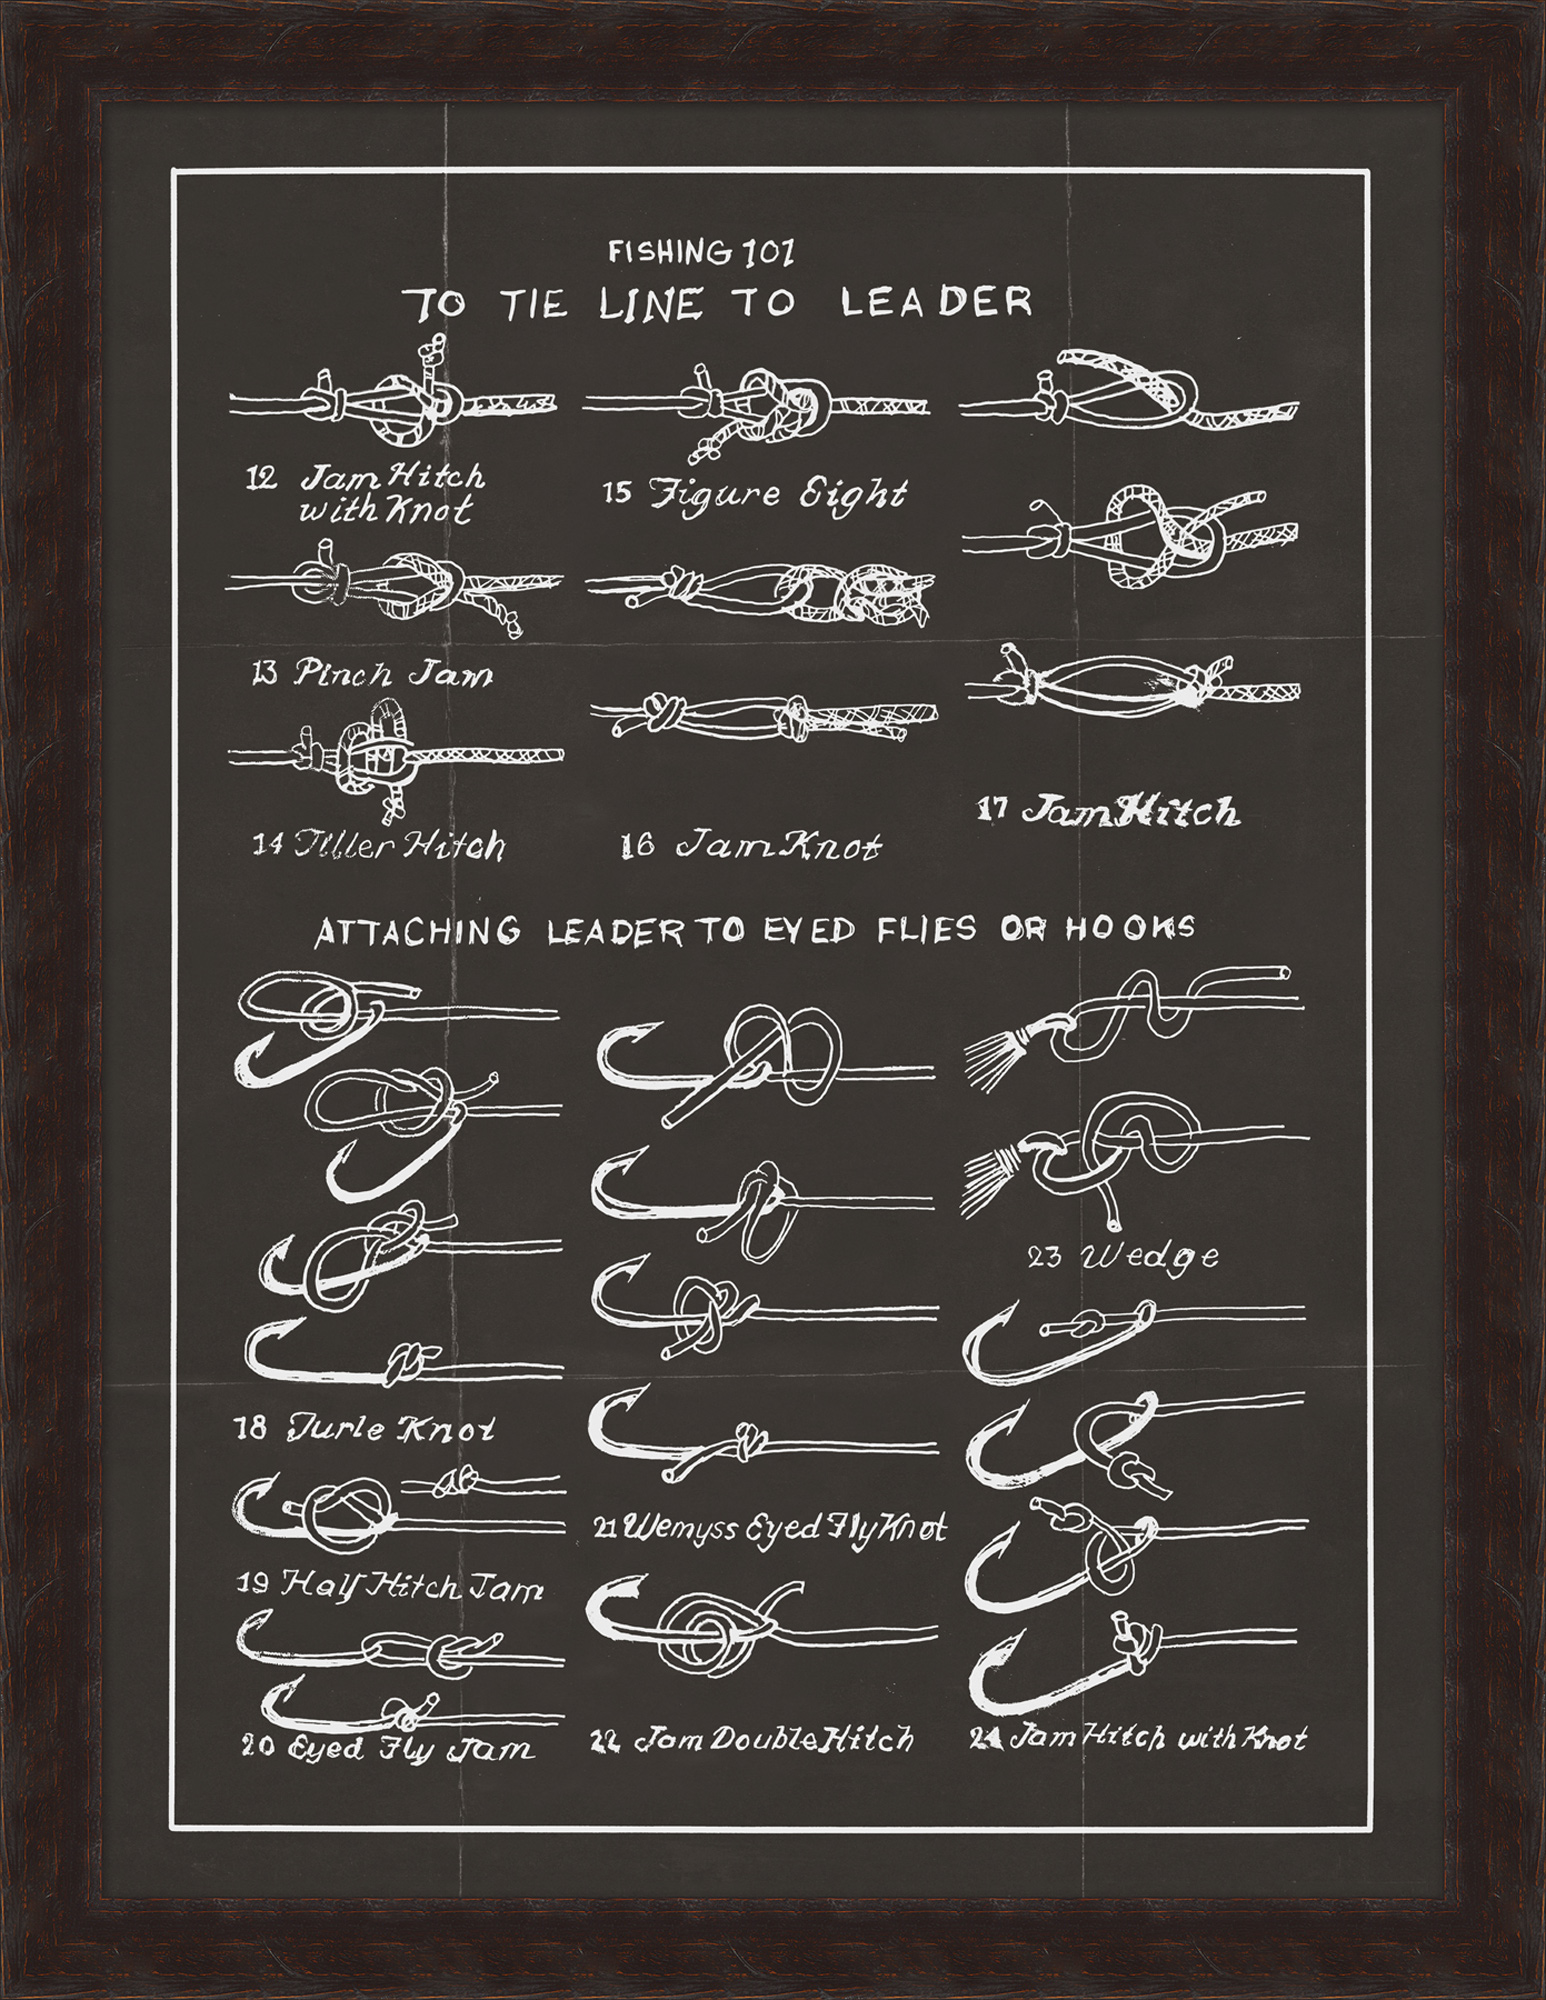 FISHING 101
TO TIE LINE TO LEADER
12 Jam Hitch
with Knot
15 Figure Eight
13 Pinch Jam
17 Jam Hitch
14 Tiller Hitch
16 Jam Knot
ATTACHING LEADER TO EYED FLIES OR HOOKS
23 Wedge
18 Turle Knot
21 Wemyss Eyed Fly Knot
19 Half Hitch Jam
20 Eyed Fly Jam
22 Jam Double Hitch
24 Jam Hitch with Knot